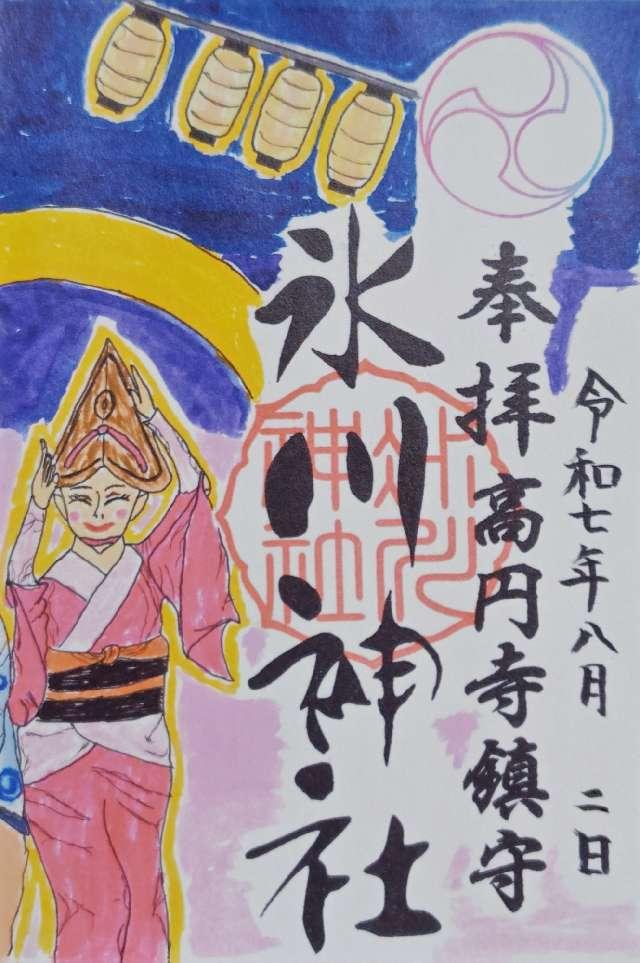 令和七年八月 二日
奉拝高円寺鎮守
氷川神社
氷川神社